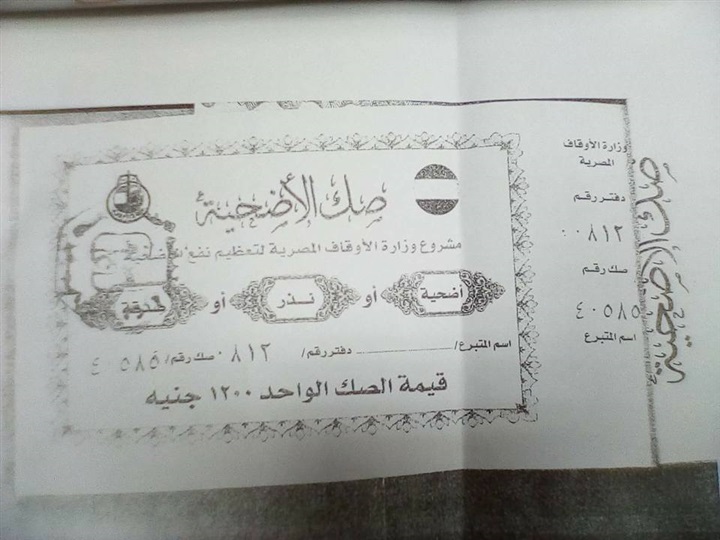 صك الأضحية
مشروع وزارة الأوقاف المصرية لتعظيم نفع الأضاحي
أضحية أو نذر أو صدقة
اسم المتبرع/ دفتر رقم/ ٠٨١٢ صك رقم/ ٤٠٥٨٥
قيمة الصك الواحد ١٢٠٠ جنيه
وزارة الأوقاف
المصرية
دفتر رقم
٠٠٨١٢
صك رقم
٤٠٥٨٥
اسم المتبرع
صك الأضحية